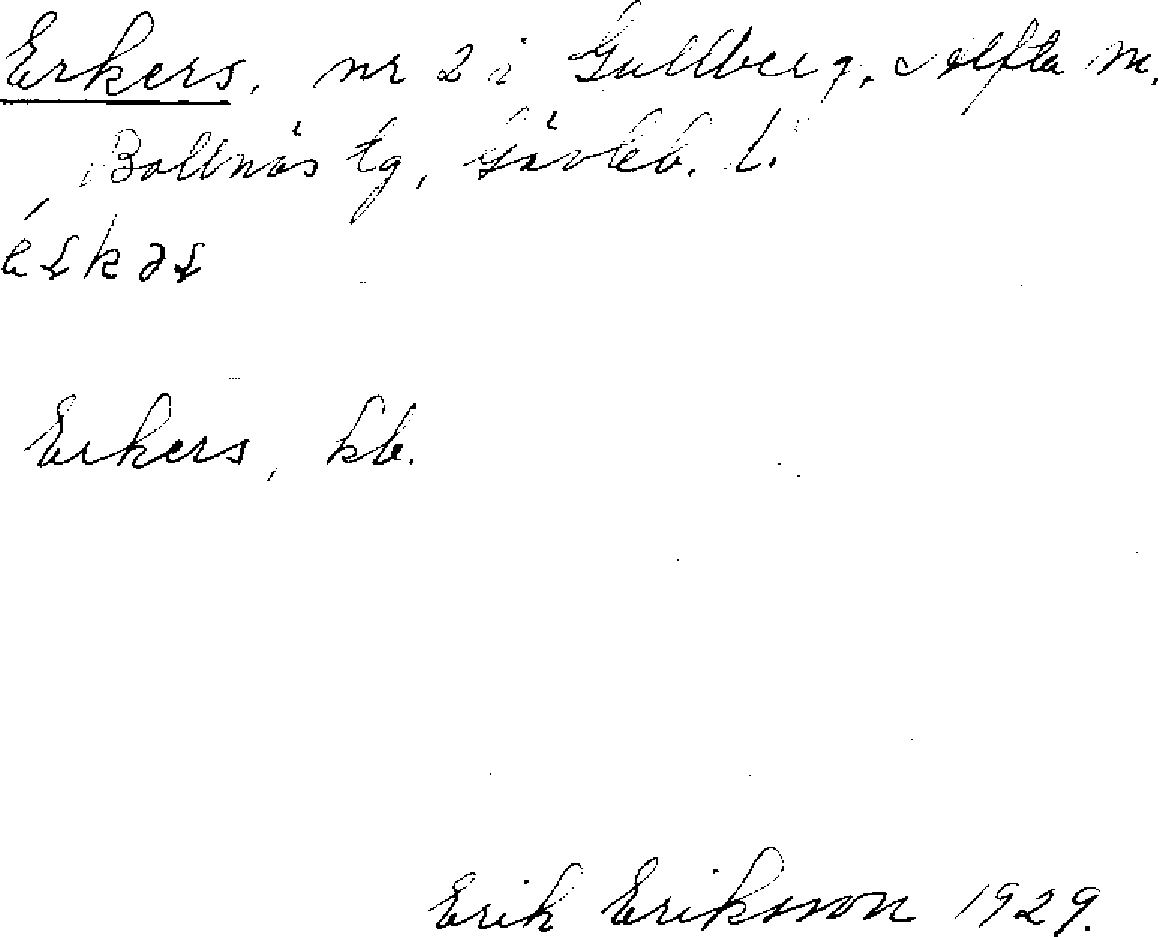 Erkers, nr 2 i Gullberg, Alfta sn.
Bollnäs tg, Gävleb. l.
Erkers, kb.
Erik Eriksson 1929.